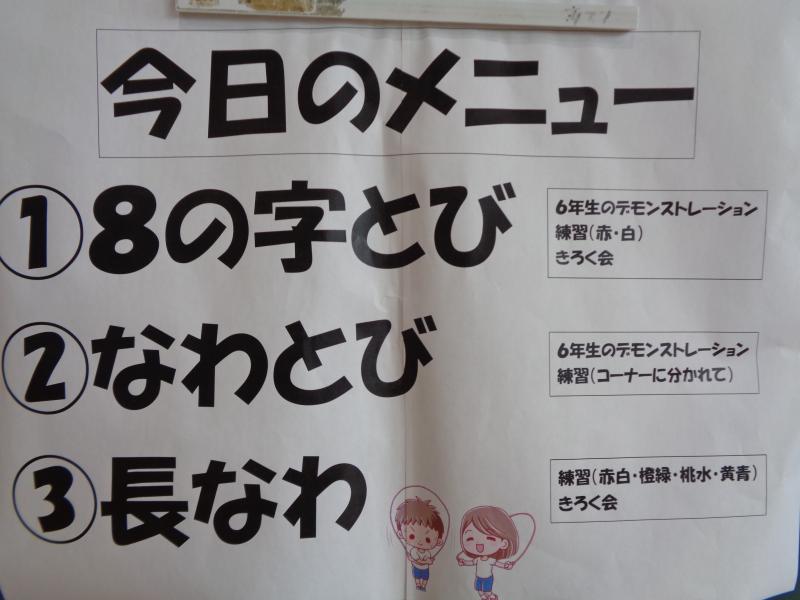 今日のメニュー
①8の字とび
6年生のデモンストレーション
練習(赤・白)
きろく会
②なわとび
6年生のデモンストレーション
練習(コーナーに分かれて)
③長なわ
練習(赤白・橙緑・桃水・黄青)
きろく会